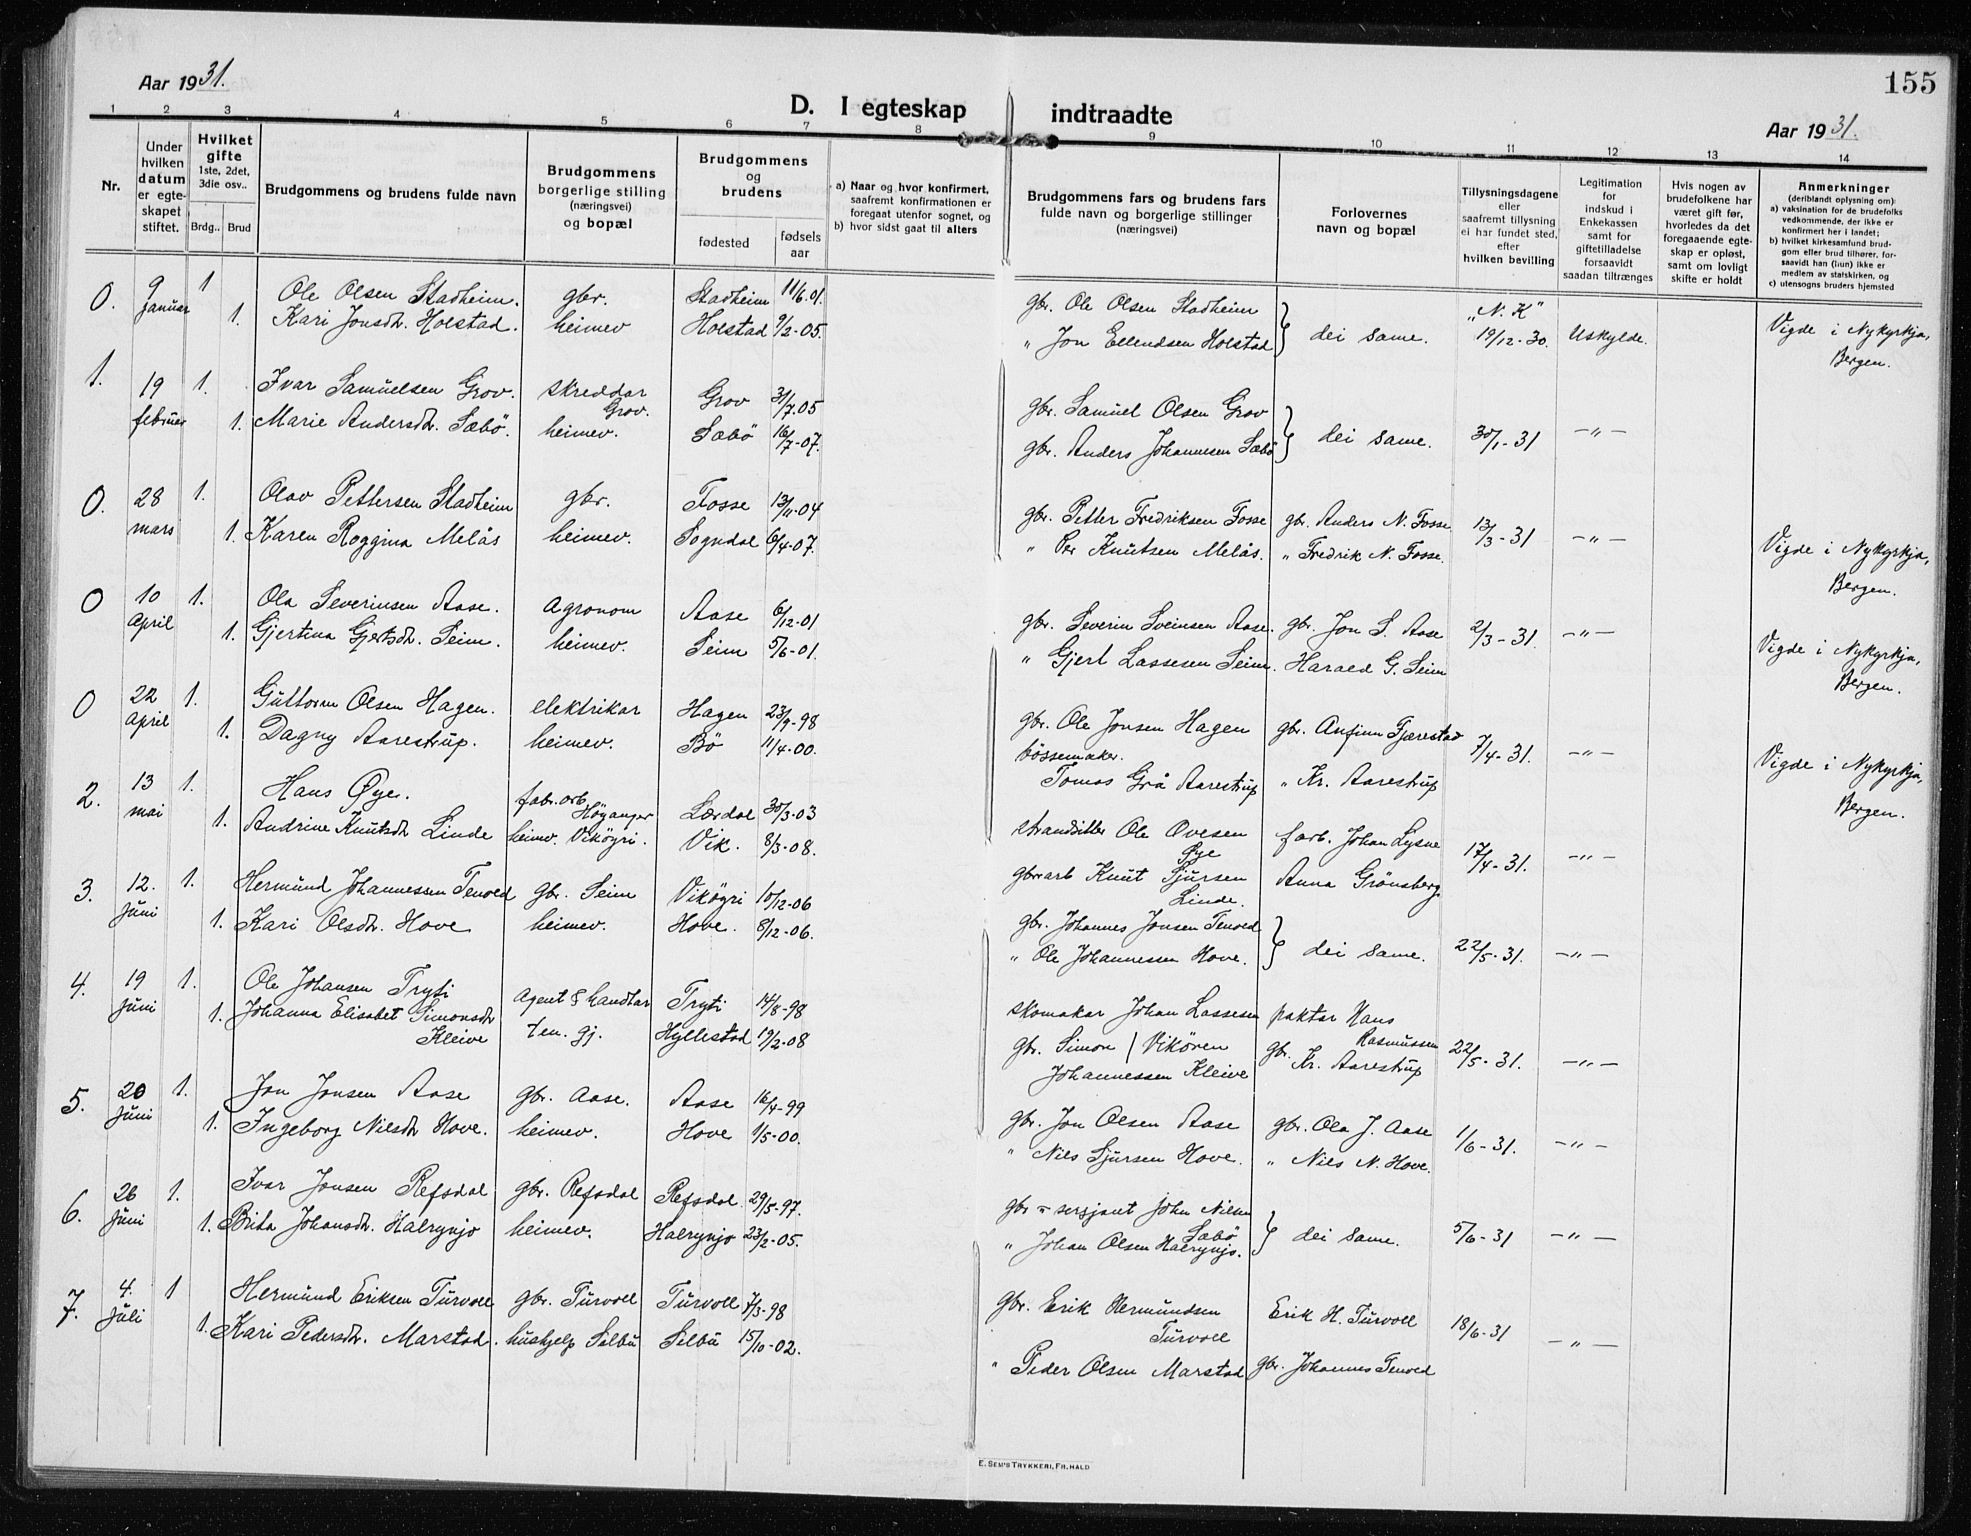 155
Aar 1931.
D. I egteskap indtraadte
Aar 1931.
1 2 3 4 5 6 7 8 9 10 11 12 13 14
Nr.
Under hvilken datum er egteskapet stiftet.
Hvilket gifte 1ste, 2det, 3die osv..
Brdg.. Brud
Brudgommens og brudens fulde navn
Brudgommens borgerlige stilling (næringsvei) og bopæl
Brudgommens og brudens
fødested
fødsels aar
a) Naar og hvor konfirmert, saafremt konfirmationen er foregaat utenfor sognet, og
b) hvor sidst gaat til alters
Brudgommens fars og brudens fars fulde navn og borgerlige stillinger (næringsvei)
Forlovernes navn og bopæl
Tillysningsdagene eller saafremt tillysning ei har fundet sted, efter hvilken bevilling
Legitimation for indskud i Enkekassen samt for giftetilladelse forsaavidt saadan tiltrænges
Hvis nogen av brudefolkene har været gift før, hvorledes da det foregaaende egteskap er opløst, samt om lovligt skifte er holdt
Anmerkninger (deriblandt oplysning om)
a) vaksination for de brudefolks vedkommende, der ikke er konfirmert her i landet;
b) hvilket kirkesamfund brudgom eller brud tilhører, forsaavidt han (hun) ikke er medlem av statskirken, og
c) utensogns bruders hjemsted
0. 9 Januar 1 Ole Olsen Stadheim. gbr. Stadheim 11/6.01. gbr. Ole Olsen Stadheim dei same. "N.K" 19/12-30. Uskylde. Vigde i Nykyrkja, Bergen.
1. Kari Jonsdtr. Holstad. heimev Holstad 9/2-05. " Jon Ellendsen Holstad
1. 19 februer 1. Ivar Samuelsen Grov. skreddar Grov. Grov 31/7.05 gbr. Samuel Olsen Grov dei same. 30/1-31 -"-
1. Marie Andersdtr. Sæbö. heimev. Sæbö 16/7-07. gbr. Anders Johannesen Sæbö
0. 28 mars 1. Olav Pettersen Stadheim gbr. Fosse 13/11-04 gbr. Petter Fredriksen Fosse gbr. Anders N. Fosse 13/3-31 -"- Vigde i Nykyrkja, Bergen.
1. Karen Roggina Melås heimev. Sogndal 6/4-07. " Per Knutsen Melås. " Fredrik N. Fosse.
0 10 April 1. Ola Severinsen Aase. Agronom Aase 6/12-01 gbr. Severin Sveinsen Aase. gbr. Jon S. Aase 2/3-31 -"- Vigde i Nykyrkja, Bergen.
1. Gjertina Gjertsdtr. Seim. heimev. Seim 5/6-01. " Gjert Lassesen Seim. Harald G. Seim
0 22 April 1. Guttorm Olsen Hagen. elektrikar Hagen 23/9-98 gbr. Ole Jonsen Hagen gbr. Anfinn Fjærestad 7/4-31. -"- Vigde i Nykyrkja, Bergen.
1. Dagny Aarestrup. heimev. Bö 11/4-00. bössemaker. Tomas Grå Aarestrup " Kr. Aarestrup
2. 13 mai 1. Hans Øye. fabr.arb. Höyanger Lærdal 30/3-03 strandsitter Ole Ovesen Øye farb. Johan Lysne 17/4-31. -"-
1. Andrine Knutsdtr Linde heimev. Vikögri. Vik. 8/3-08. gbrarb Knut Sjursen Linde. Anna Grönsberg
3. 12. Juni 1. Hermund Johannessen Tenold gbr. Seim Vikögri 10/12-06 gbr. Johannes Jonsen Tenold dei same. 22/5-31. -"-
1. Kari Olsdtr. Hove heimev. Hove. 8/12-06. " Ole Johannessen Hove.
4. 19 Juni 1. Ole Johansen Tryti Agent & handlar Tryti 14/8-98 skomakar Johan Lassesen Vikören paktar Hans Rasmussen 22/5-31. -"-
1. Johanna Elisabet Simonsdtr Kleive ten. gj. Hyllestad 19/2-08 gbr. Simon Johannessen Kleive gbr. Kr. Aarestrup
5. 20 Juni 1. Jon Jonsen Aase gbr. Aase. Aase 16/4-99 gbr. Jon Olsen Aase gbr. Ola J. Aase 1/6-31. -"-
1. Ingeborg Nilsdtr Hove. heimev. Hove 1/5-00. " Nils Sjursen Hove. " Nils N. Hove.
6. 26 Juni 1. Ivar Jonsen Refsdal gbr. Refsdal Refsdal 29/5-97. gbr = sersjant John Nilsen Sæbö dei same. 5/6-31 -"-
1. Brita Johansdtr. Halrynjo heimev. Halrynjo 23/2-05. " Johan Olsen Halrynjo.
7. 4. Juli 1 Hermund Eriksen Turvoll gbr. Turvoll Turvoll 7/3-98 gbr. Erik Hermundsen Turvoll Erik H. Turvoll 18/6-31 -"-
1. Kari Pedersdtr. Marstad. hushjelp Selbu Selbu 15/10-02. " Peder Olsen Marstad gbr. Johannes Tenold
E. SEM'S TRYKKERI, FR.HALD